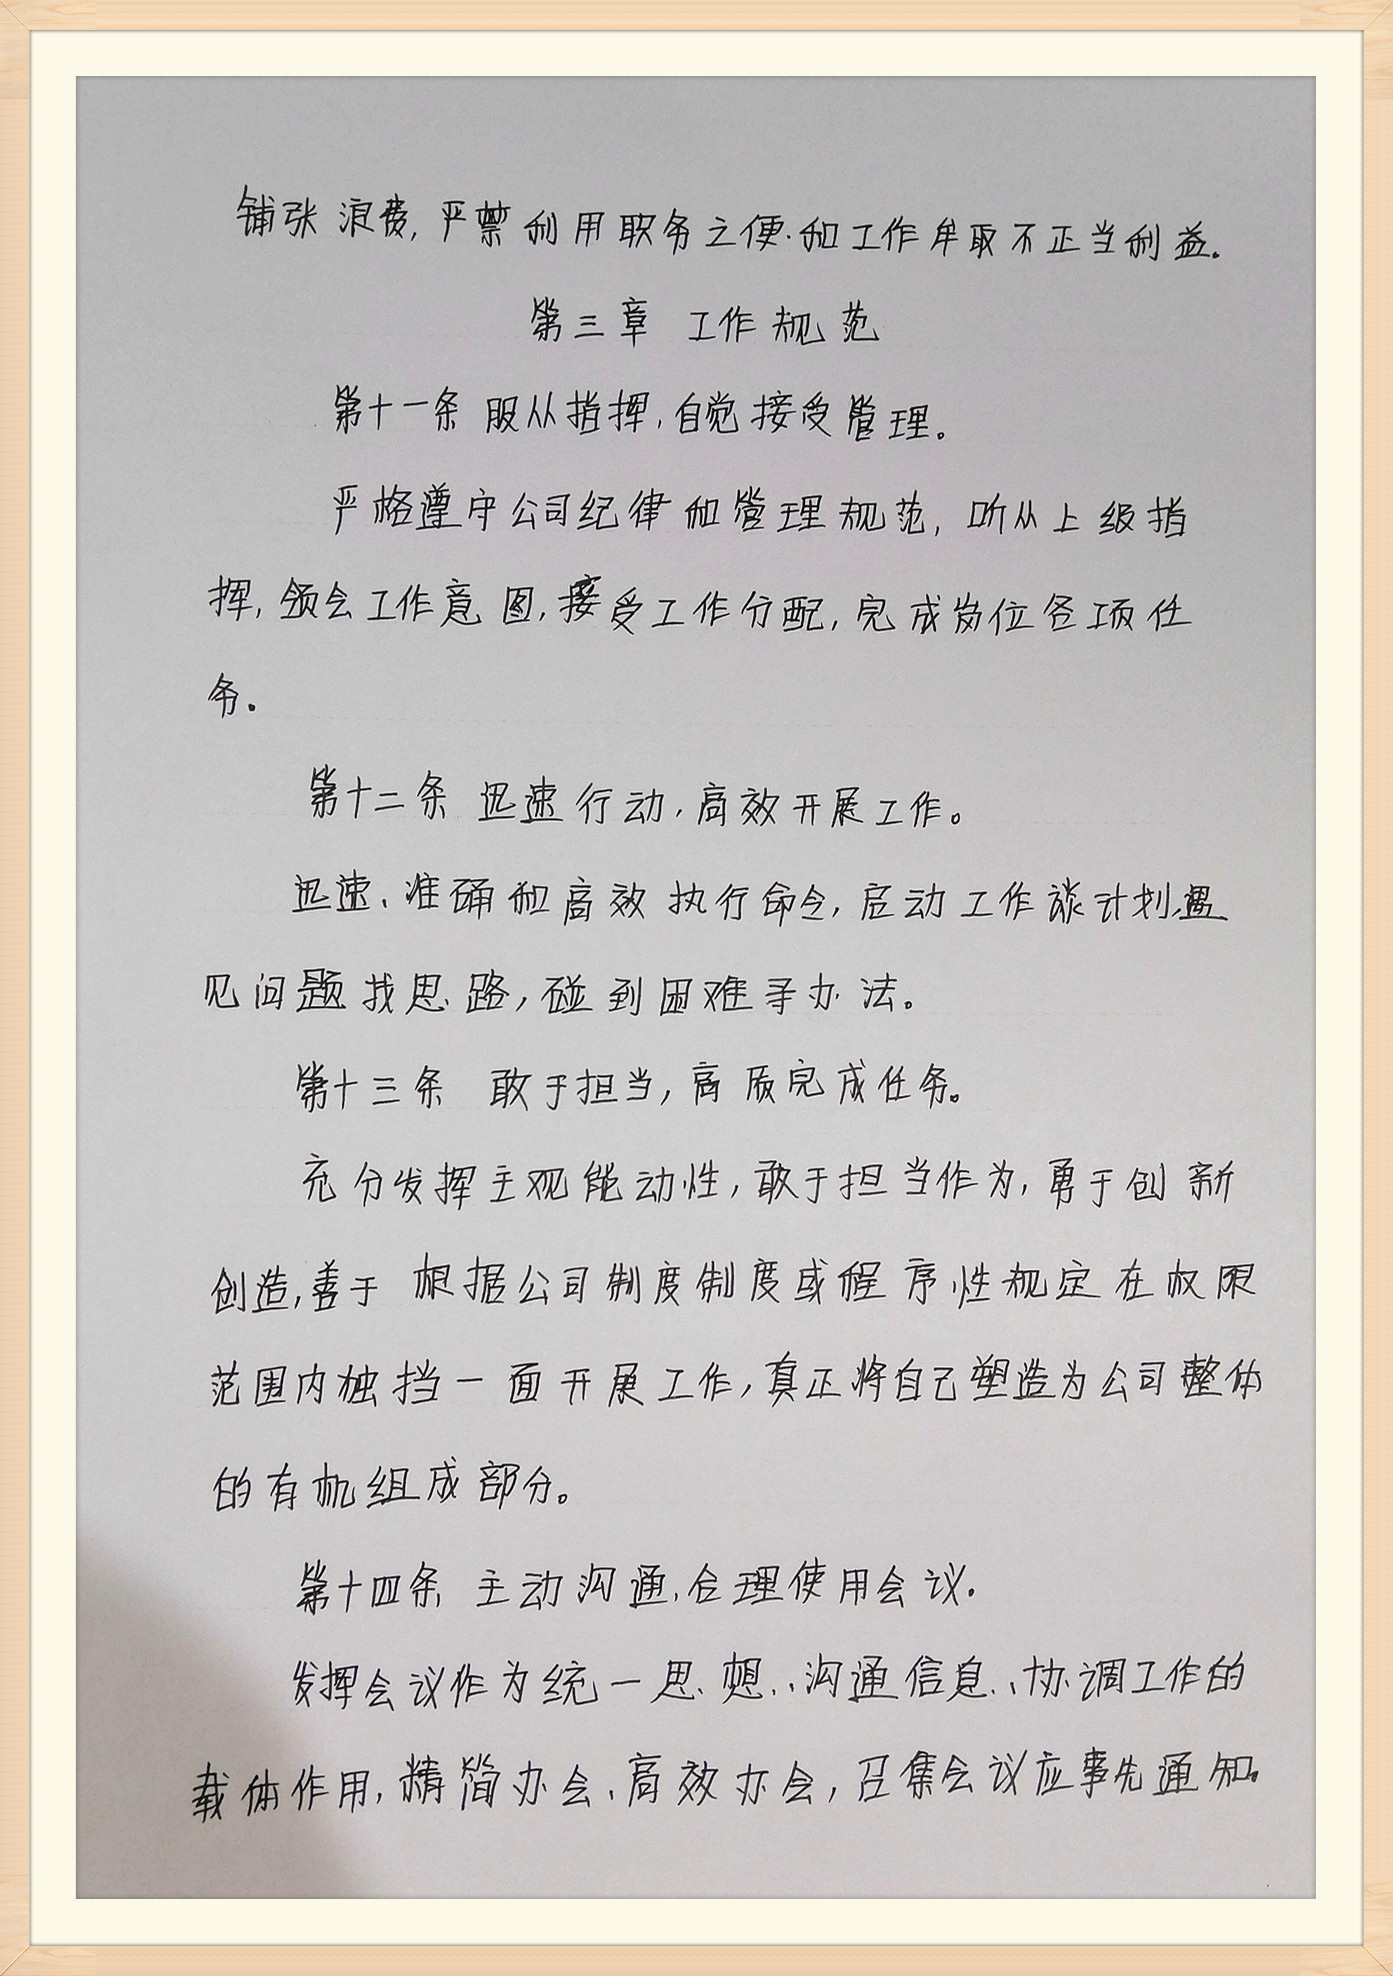 铺张浪费,严禁利用职务之便.和工作牟取不正当利益。
第三章 工作规范
第十一条 服从指挥,自觉接受管理。
严格遵守公司纪律和管理规范,听从上级指
挥,领会工作意图,接受工作分配,完成岗位各项任
务。
第十二条 迅速行动,高效开展工作。
迅速、准确和高效执行命令,启动工作谈计划,遇
见问题找思路,碰到困难寻办法。
第十三条 敢于担当,高质完成任务。
充分发挥主观能动性,敢于担当作为,勇于创新
创造,善于根据公司制度制度或程序性规定在权限
范围内独挡一面开展工作,真正将自己塑造为公司整体
的有机组成部分。
第十四条 主动沟通,合理使用会议.
发挥会议作为统一思想、沟通信息、协调工作的
载体作用,精简办会、高效办会,召集会议应事先通知。